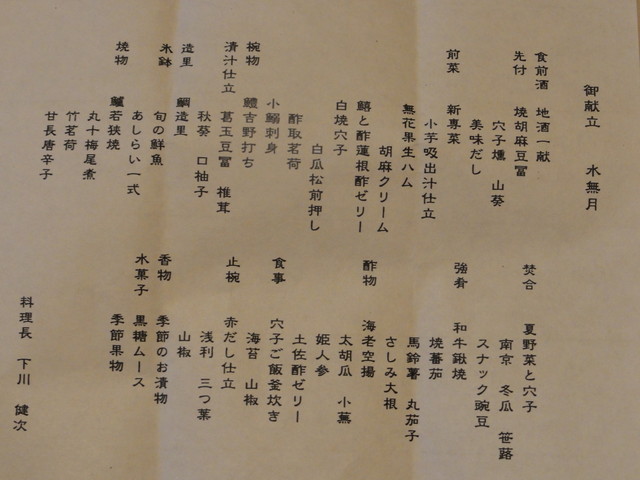 御献立　水無月
食前酒　地酒一献
先付　焼胡麻豆冨
穴子燻　山葵
美味だし
前菜　新蓴菜
小芋吸出汁仕立
無花果生ハム
胡麻クリーム
鱚と酢蓮根酢ゼリー
白焼穴子
白瓜松前押し
酢取茗荷
小鰯刺身
椀物　鱧吉野打ち
清汁仕立　葛玉豆冨　椎茸
秋葵　口柚子
造里　鯛造里
氷鉢　旬の鮮魚
あしらい一式
焼物　鱸若狭焼
丸十梅尾煮
竹茗荷
甘長唐辛子
焚合　夏野菜と穴子
南京　冬瓜　笹蕗
スナック豌豆
強肴　和牛鍬焼
焼蕃茄
馬鈴薯　丸茄子
さしみ大根
酢物　海老空揚
太胡瓜　小蕪
姫人参
土佐酢ゼリー
食事　穴子ご飯釜炊き
海苔　山椒
止椀　赤だし仕立
浅利　三つ葉
山椒
香物　季節のお漬物
水菓子　黒糖ムース
季節果物
料理長　下川　健次